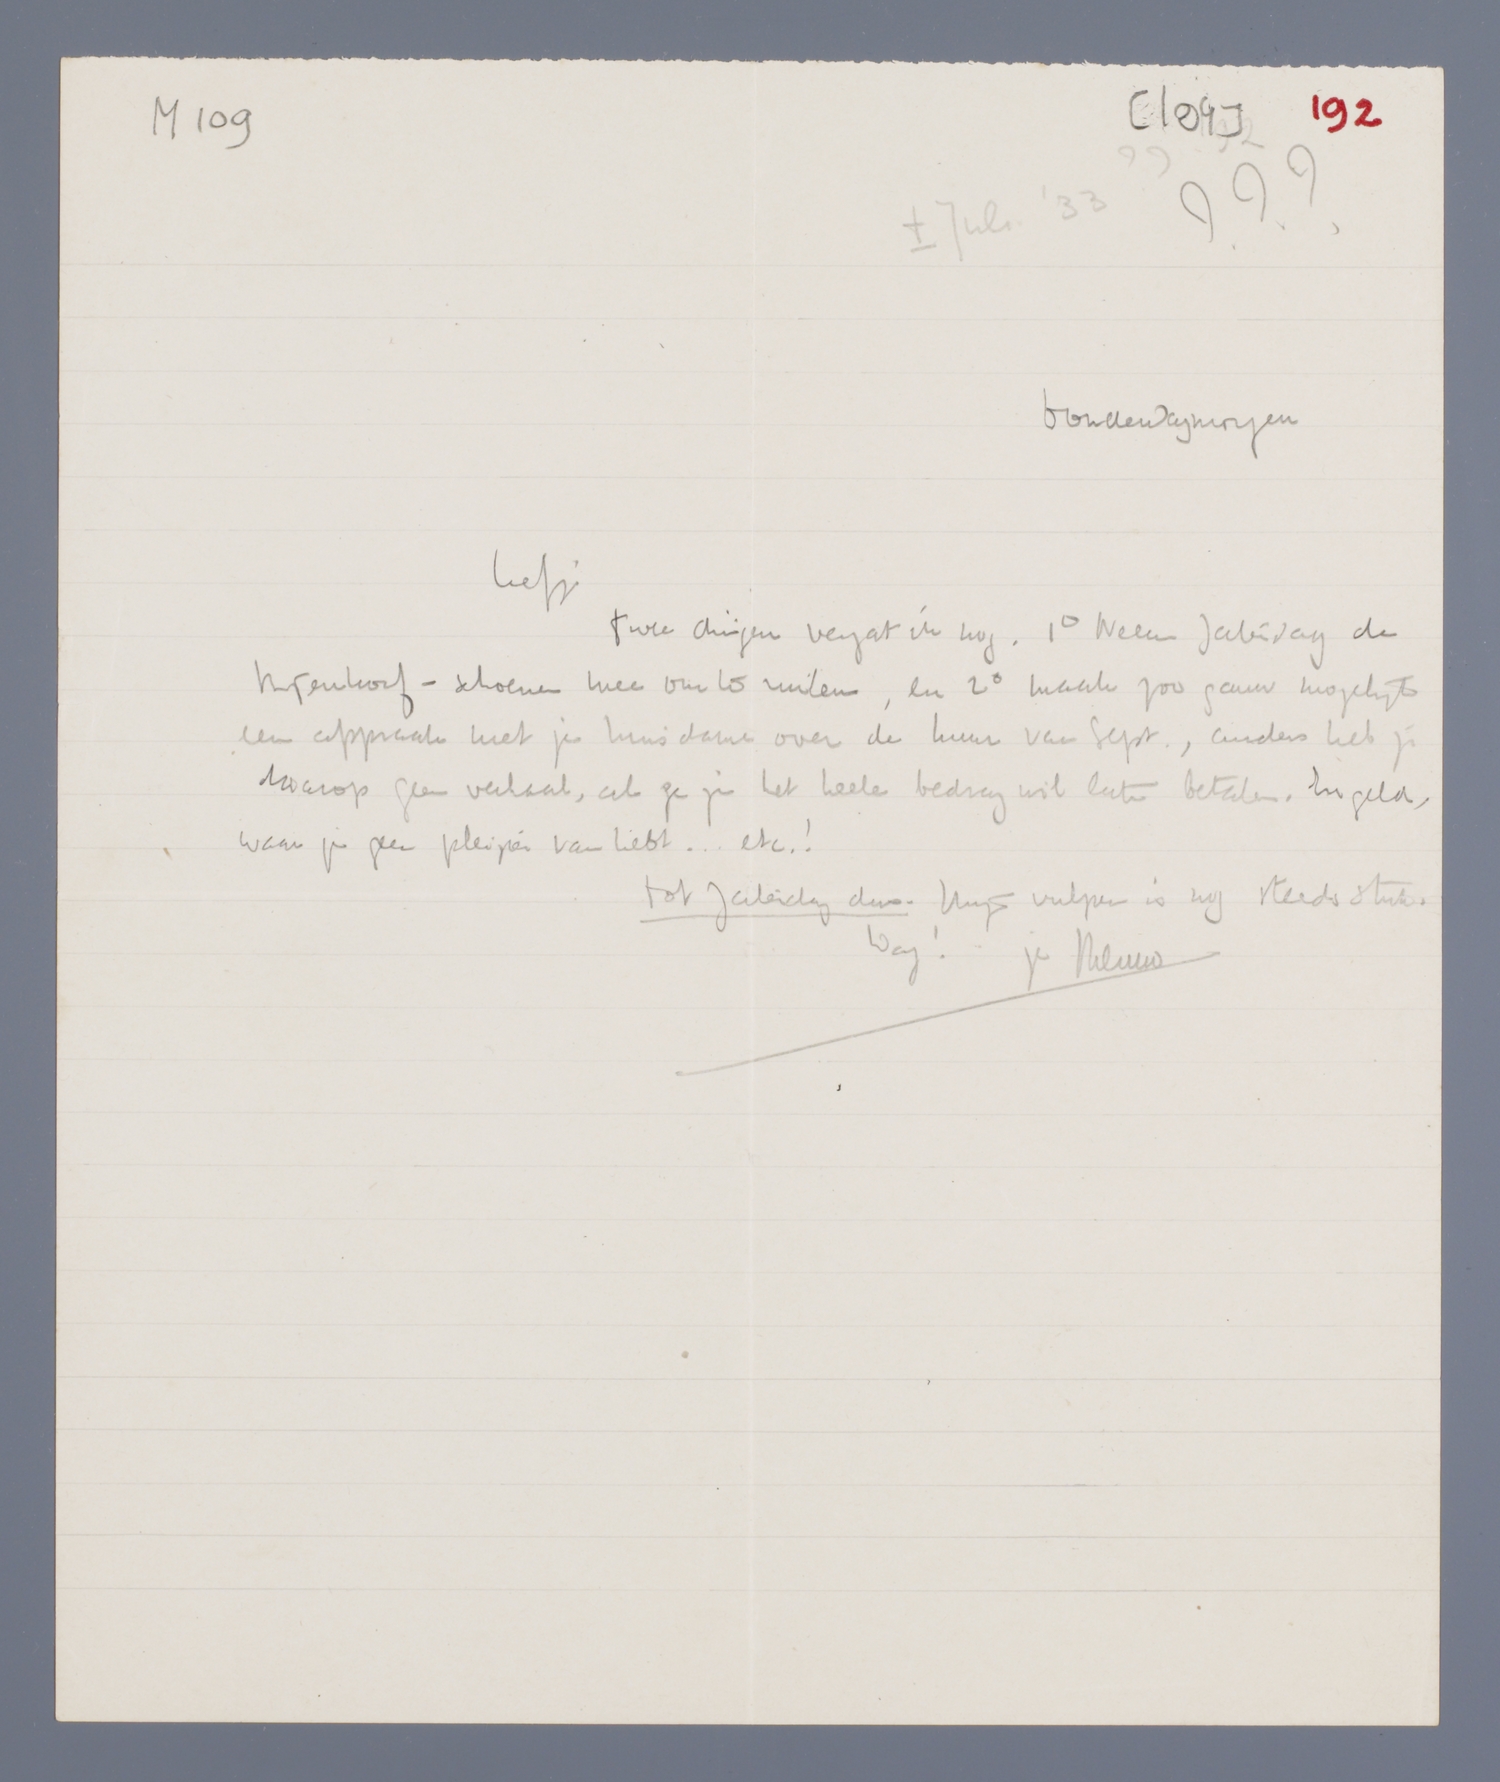 M 109
[104] 192
?? 192
± Juli '33 ???
Donderdagmorgen
Liefje
Twee dingen vergat ik nog. 1° Neem Zaterdag de
Bijenkorf-schoenen mee om te ruilen, en 2° maak zoo gauw mogelijk
een afspraak met je huisdame over de huur van Sept., anders heb je
daarop geen verhaal, als ze je het heele bedrag wil laten betalen. En geld,
waar je geen pleizier van hebt... etc.!
Tot Zaterdag dus. Mijn vulpen is nog steeds stuk.
Dag! je Menno